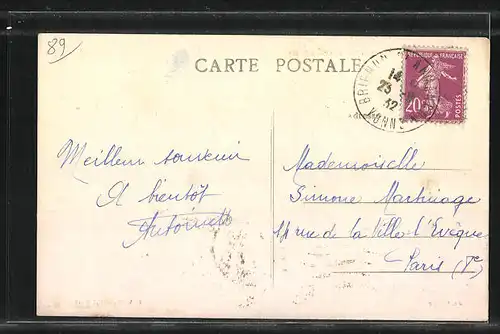 89
CARTE POSTALE
BRIENON
14
23
32
YONNE
REPUBLIQUE FRANÇAISE
20c
POSTES
Meilleur souvenir
A bientôt
Mademoiselle
Simone Martinage
14 rue de la Ville l'Evêque
Paris